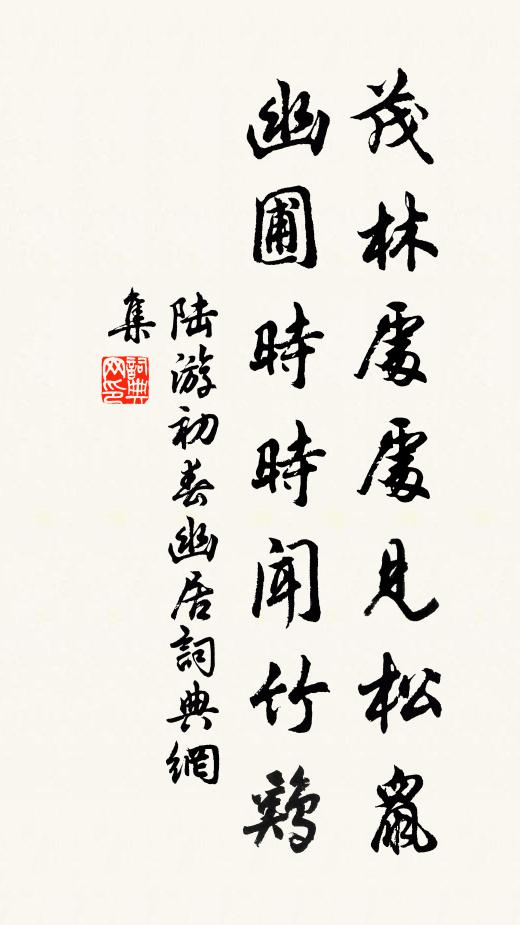 茂林處處見松鼠
幽圃時時聞竹鷄
陸游初春幽居詞典網
集
詞典
网印